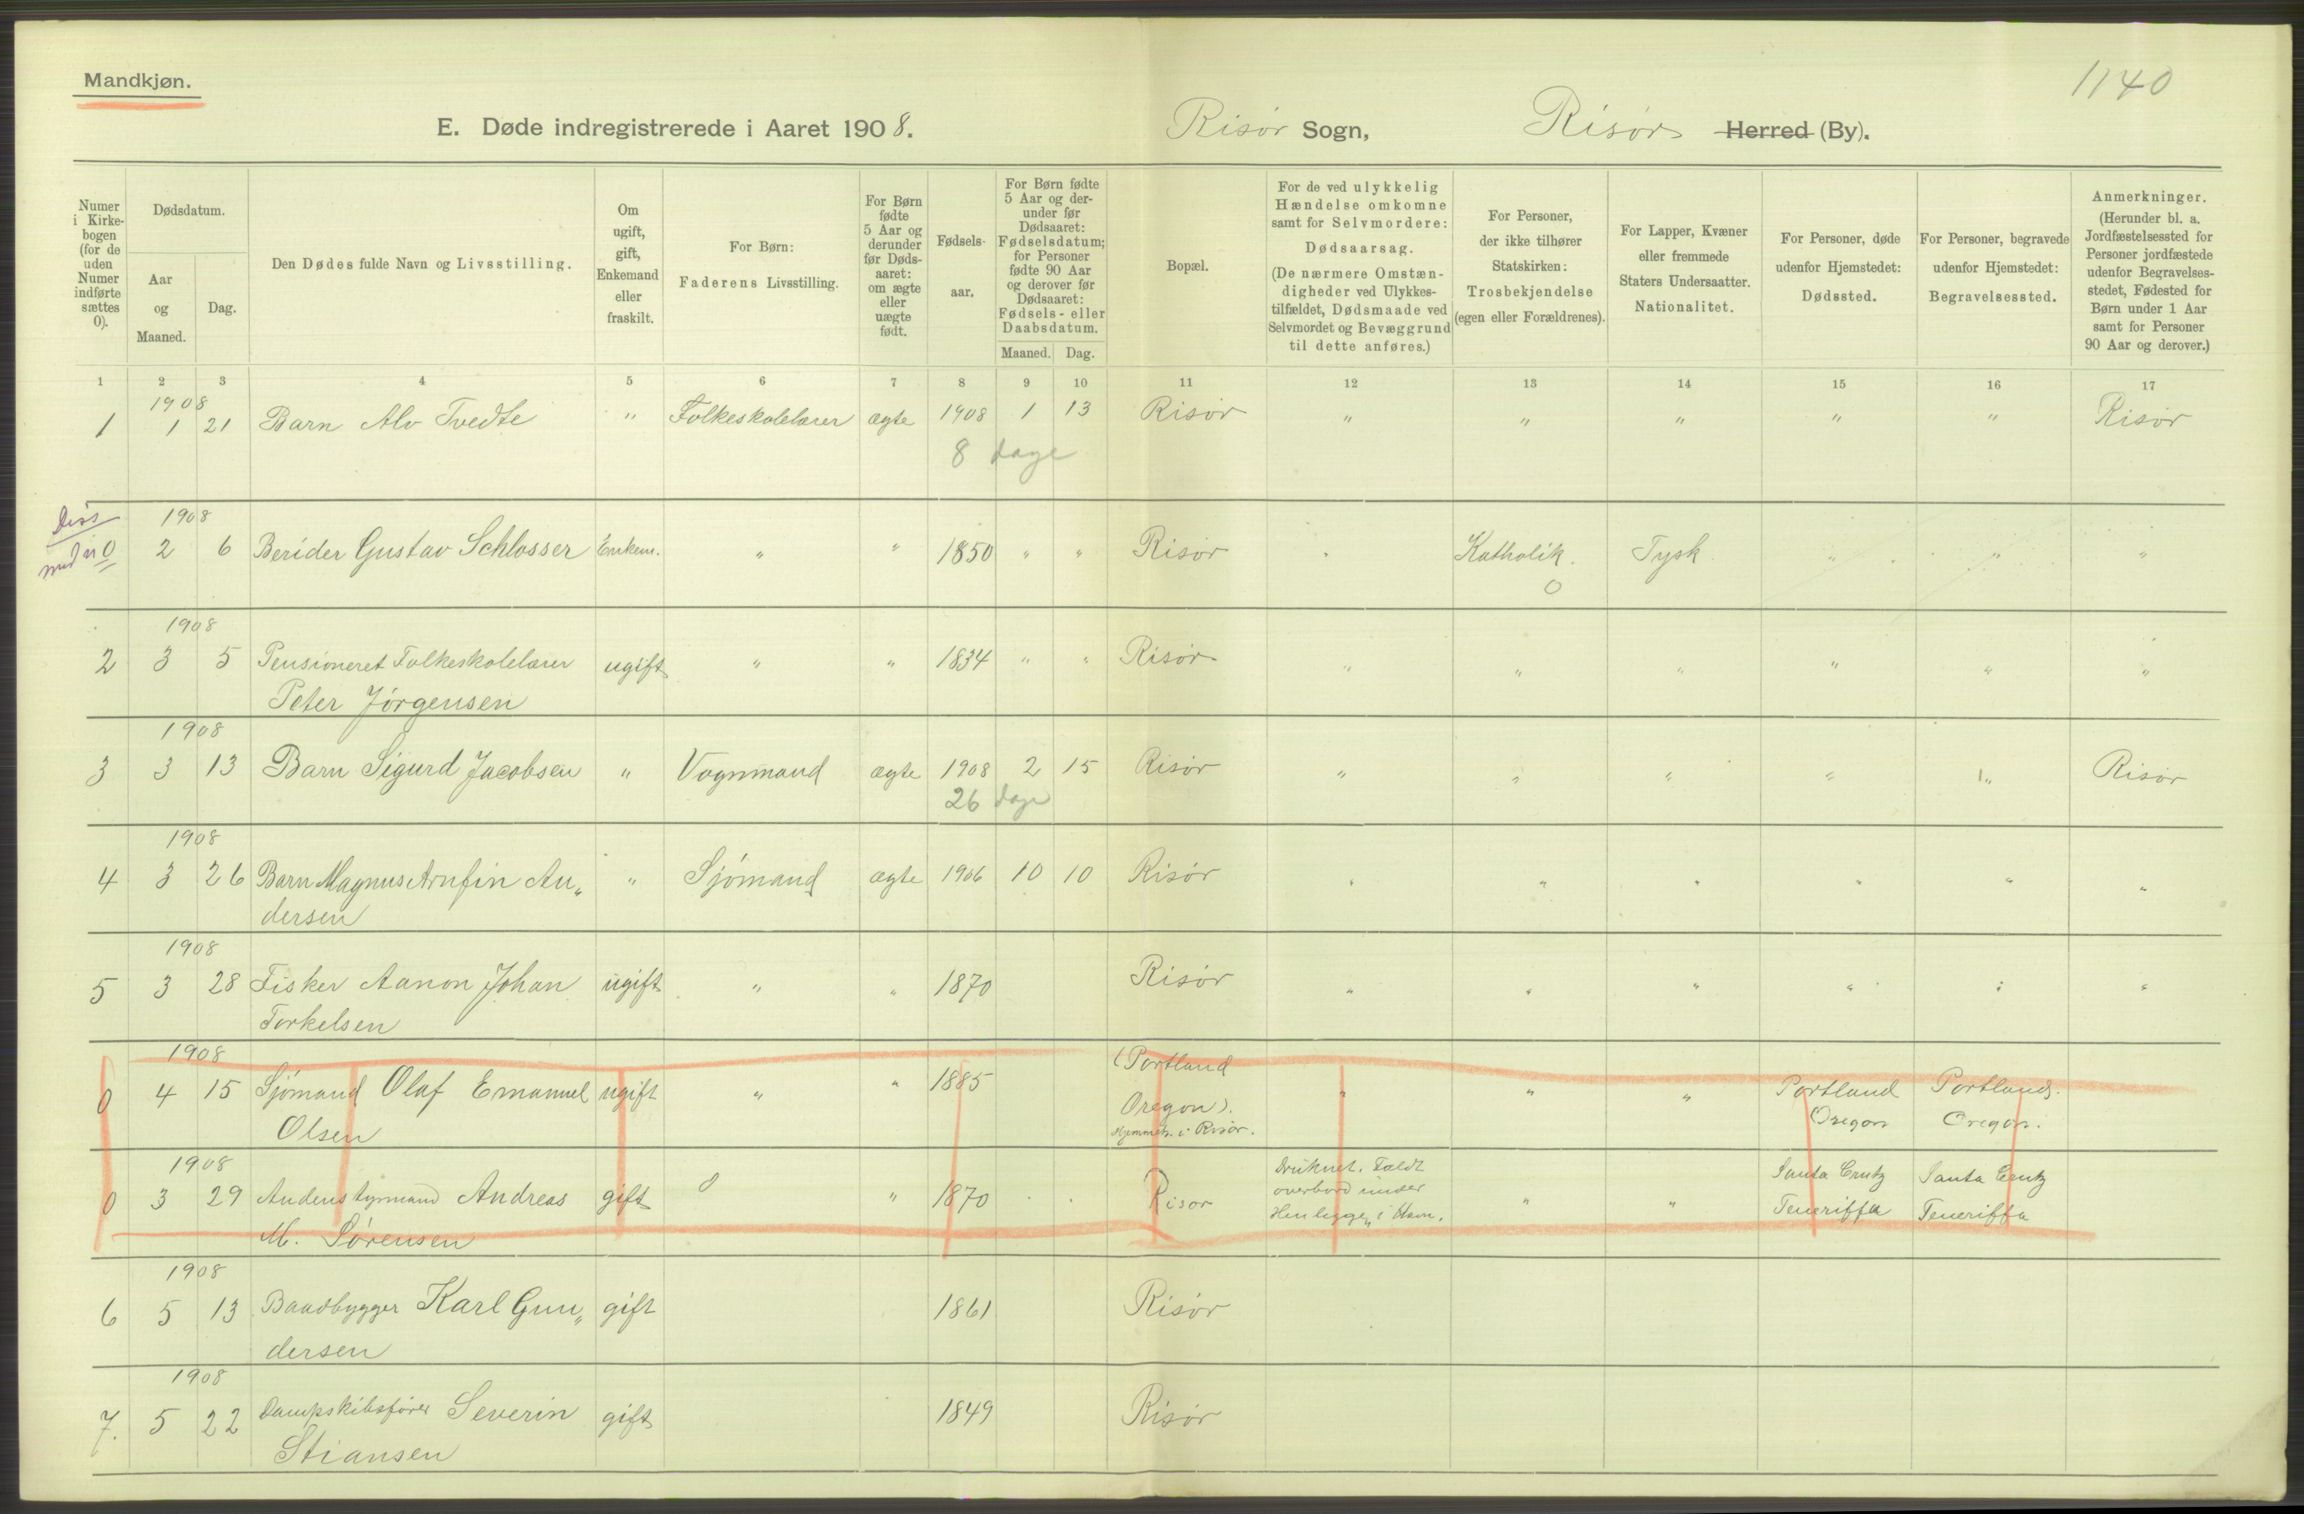 Mandkjøn.
1140
E. Døde indregistrerede i Aaret 1908. Risør Sogn, Risør Herred (By).
Numer i Kirke-bogen (for de uden Numer indførte sættes 0).
Dødsdatum.
Aar og Maaned.
Dag.
Den Dødes fulde Navn og Livsstilling.
Om ugift, gift, Enkemand eller fraskilt.
For Børn: Faderens Livsstilling.
For Børn fødte 5 Aar og derunder før Døds-aaret: om ægte eller uægte født.
Fødsels-aar.
For Børn fødte 5 Aar og der-under før Dødsaaret: Fødselsdatum; for Personer fødte 90 Aar og derover før Dødsaaret: Fødsels- eller Daabsdatum.
Maaned. Dag.
Bopæl.
For de ved ulykkelig Hændelse omkomne samt for Selvmordere: Dødsaarsag. (De nærmere Omstæn-digheder ved Ulykkes-tilfældet, Dødsmaade ved Selvmordet og Bevæggrund til dette anføres.)
For Personer, der ikke tilhører Statskirken: Trosbekjendelse (egen eller Forældrenes).
For Lapper, Kvæner eller fremmede Staters Undersaatter. Nationalitet.
For Personer, døde udenfor Hjemstedet: Dødssted.
For Personer, begravede udenfor Hjemstedet: Begravelsessted.
Anmerkninger. (Herunder bl. a. Jordfæstelsessted for Personer jordfæstede udenfor Begravelses-stedet, Fødested for Børn under 1 Aar samt for Personer 90 Aar og derover.)
1 2 3 4 5 6 7 8 9 10 11 12 13 14 15 16 17
1908
1 1 21 Barn Alv Tvedte " Folkeskolelærer ægte 1908 1 13 Risør " " " " " Risør
8 dage
Diss
1908
0 2 6 Berider Gustav Schlosser Enkem. " " 1850 " " Risør " Katholik. Tysk " " "
0
1908
2 3 5 Pensioneret Folkeskolelærer ugift " " 1834 " " Risør " " " " " "
Peter Jørgensen
1908
3 3 13 Barn Sigurd Jacobsen " Vognmand ægte 1908 2 15 Risør " " " " " Risør
26 dage
1908
4 3 26 Barn Magnus Arnfin An„ " Sjómand ægte 1906 10 10 Risør " " " " " "
dersen
1908
5 3 28 Fisker Aanon Johan ugift " " 1870 Risør " " " " " "
Torkelsen
1908
0 4 15 Sjómand Olaf Emanuel ugift " " 1885 (Portland " " " Portland Portland.
Olsen Oregon). Oregon Oregon.
Hjemmeh. i Risør.
1908
0 3 29 Andenstyrmand Andreas gift 0 " 1870 Risør Druknet. Faldt overbord under Henligge„ i Havn. " " Santa Crutz Teneriffa Santa Crutz Teneriffa
M. Sørensen
1908
6 5 13 Baadbygger Karl Gun„ gift 1861 Risør
dersen
1908
7. 5 22 Dampskibsfører Severin gift 1849 Risør
Stiansen